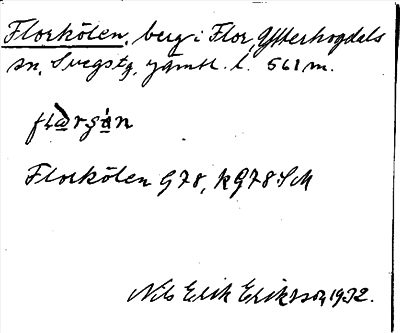 Florkölen, berg i Flor, Ytterhogdals
sn, Svegs tg, Jämtl. l. 561 m.
Florkölen G78, kG78 SM
Nils Erik Eriksson, 1932.